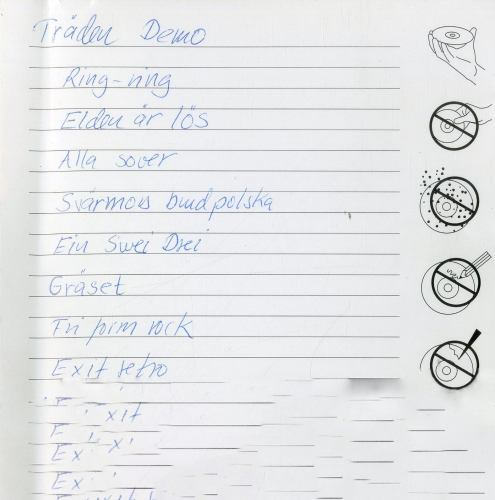 Träden Demo
Ring-ring
Elden är lös
Alla sover
Svärmors brudpolska
Ein Swei Drei
Gräset
Fri form rock
Exit retro